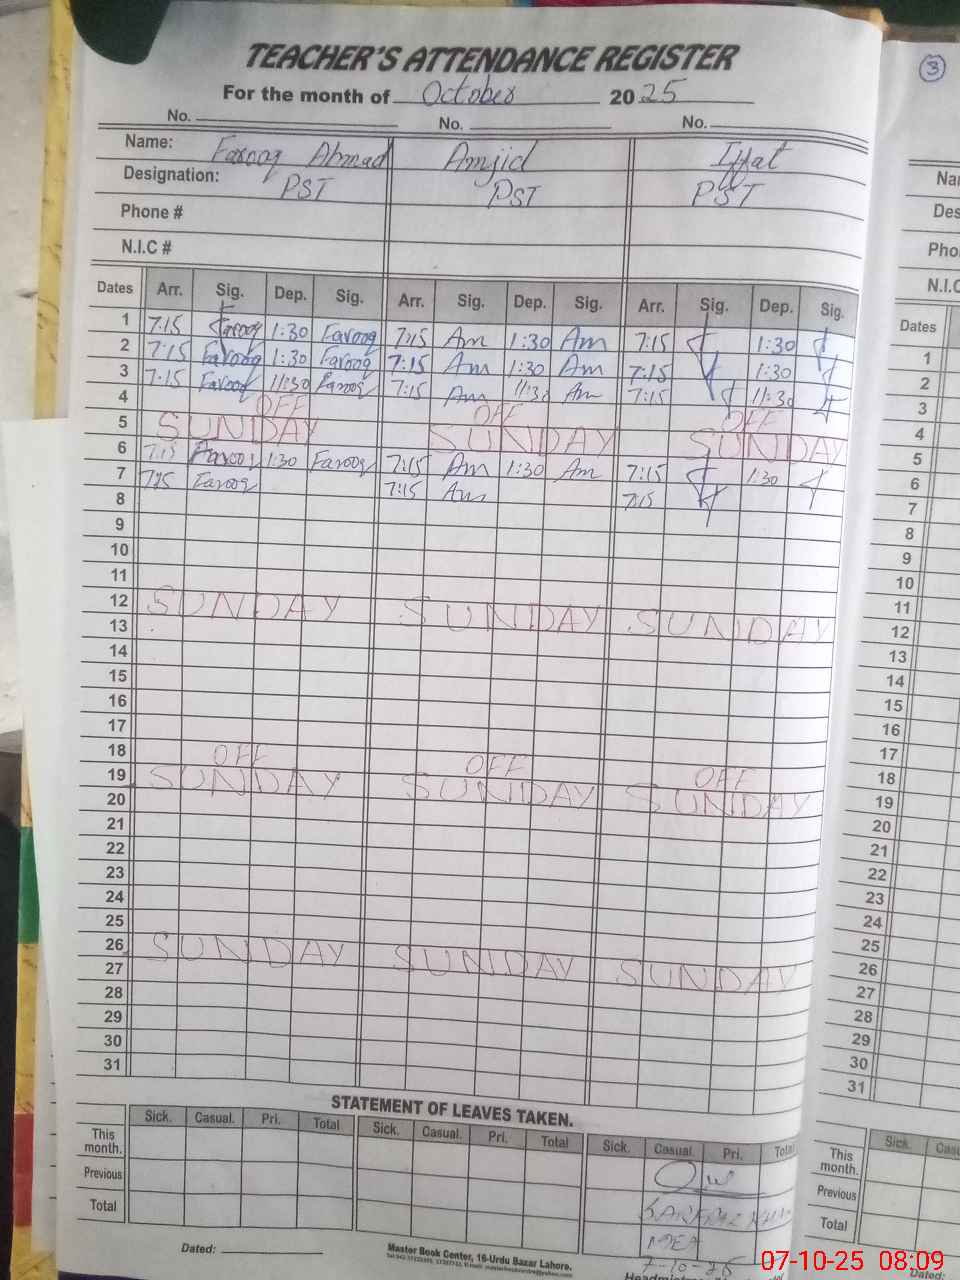 TEACHER'S ATTENDANCE REGISTER
3
For the month of October 2025
No. No. No.
Name: Farooq Ahmad Amjid Iffat
Designation: PST PST PST
Phone #
N.I.C #
Dates Arr. Sig. Dep. Sig. Arr. Sig. Dep. Sig. Arr. Sig. Dep. Sig.
1 7:15 Farooq 1:30 Farooq 7:15 Am 1:30 Am 7:15 1:30
2 7:15 Farooq 1:30 Farooq 7:15 Am 1:30 Am 7:15 1:30
3 7:15 Farooq 11:30 Farooq 7:15 Am 11:30 Am 7:15 11:30
4 OFF OFF OFF
5 SUNDAY SUNDAY SUNDAY
6 7:15 Farooq 1:30 Farooq 7:15 Am 1:30 Am 7:15 1:30
7 7:15 Farooq 7:15 Am 7:15
8
9
10
11
12 SUNDAY SUNDAY SUNDAY
13
14
15
16
17
18 OFF OFF OFF
19 SUNDAY SUNDAY SUNDAY
20
21
22
23
24
25
26 SUNDAY SUNDAY SUNDAY
27
28
29
30
31
STATEMENT OF LEAVES TAKEN.
Sick. Casual. Pri. Total Sick. Casual. Pri. Total Sick. Casual. Pri. Total
This month.
Previous
Total
SARFRAZ KHAN
MEA
7-10-25
Dated:
Master Book Center, 16-Urdu Bazar Lahore.
Na
Des
Pho
N.I.C
Dates
1
2
3
4
5
6
7
8
9
10
11
12
13
14
15
16
17
18
19
20
21
22
23
24
25
26
27
28
29
30
31
Sick. Casu
This month.
Previous
Total
Dated:
07-10-25 08:09